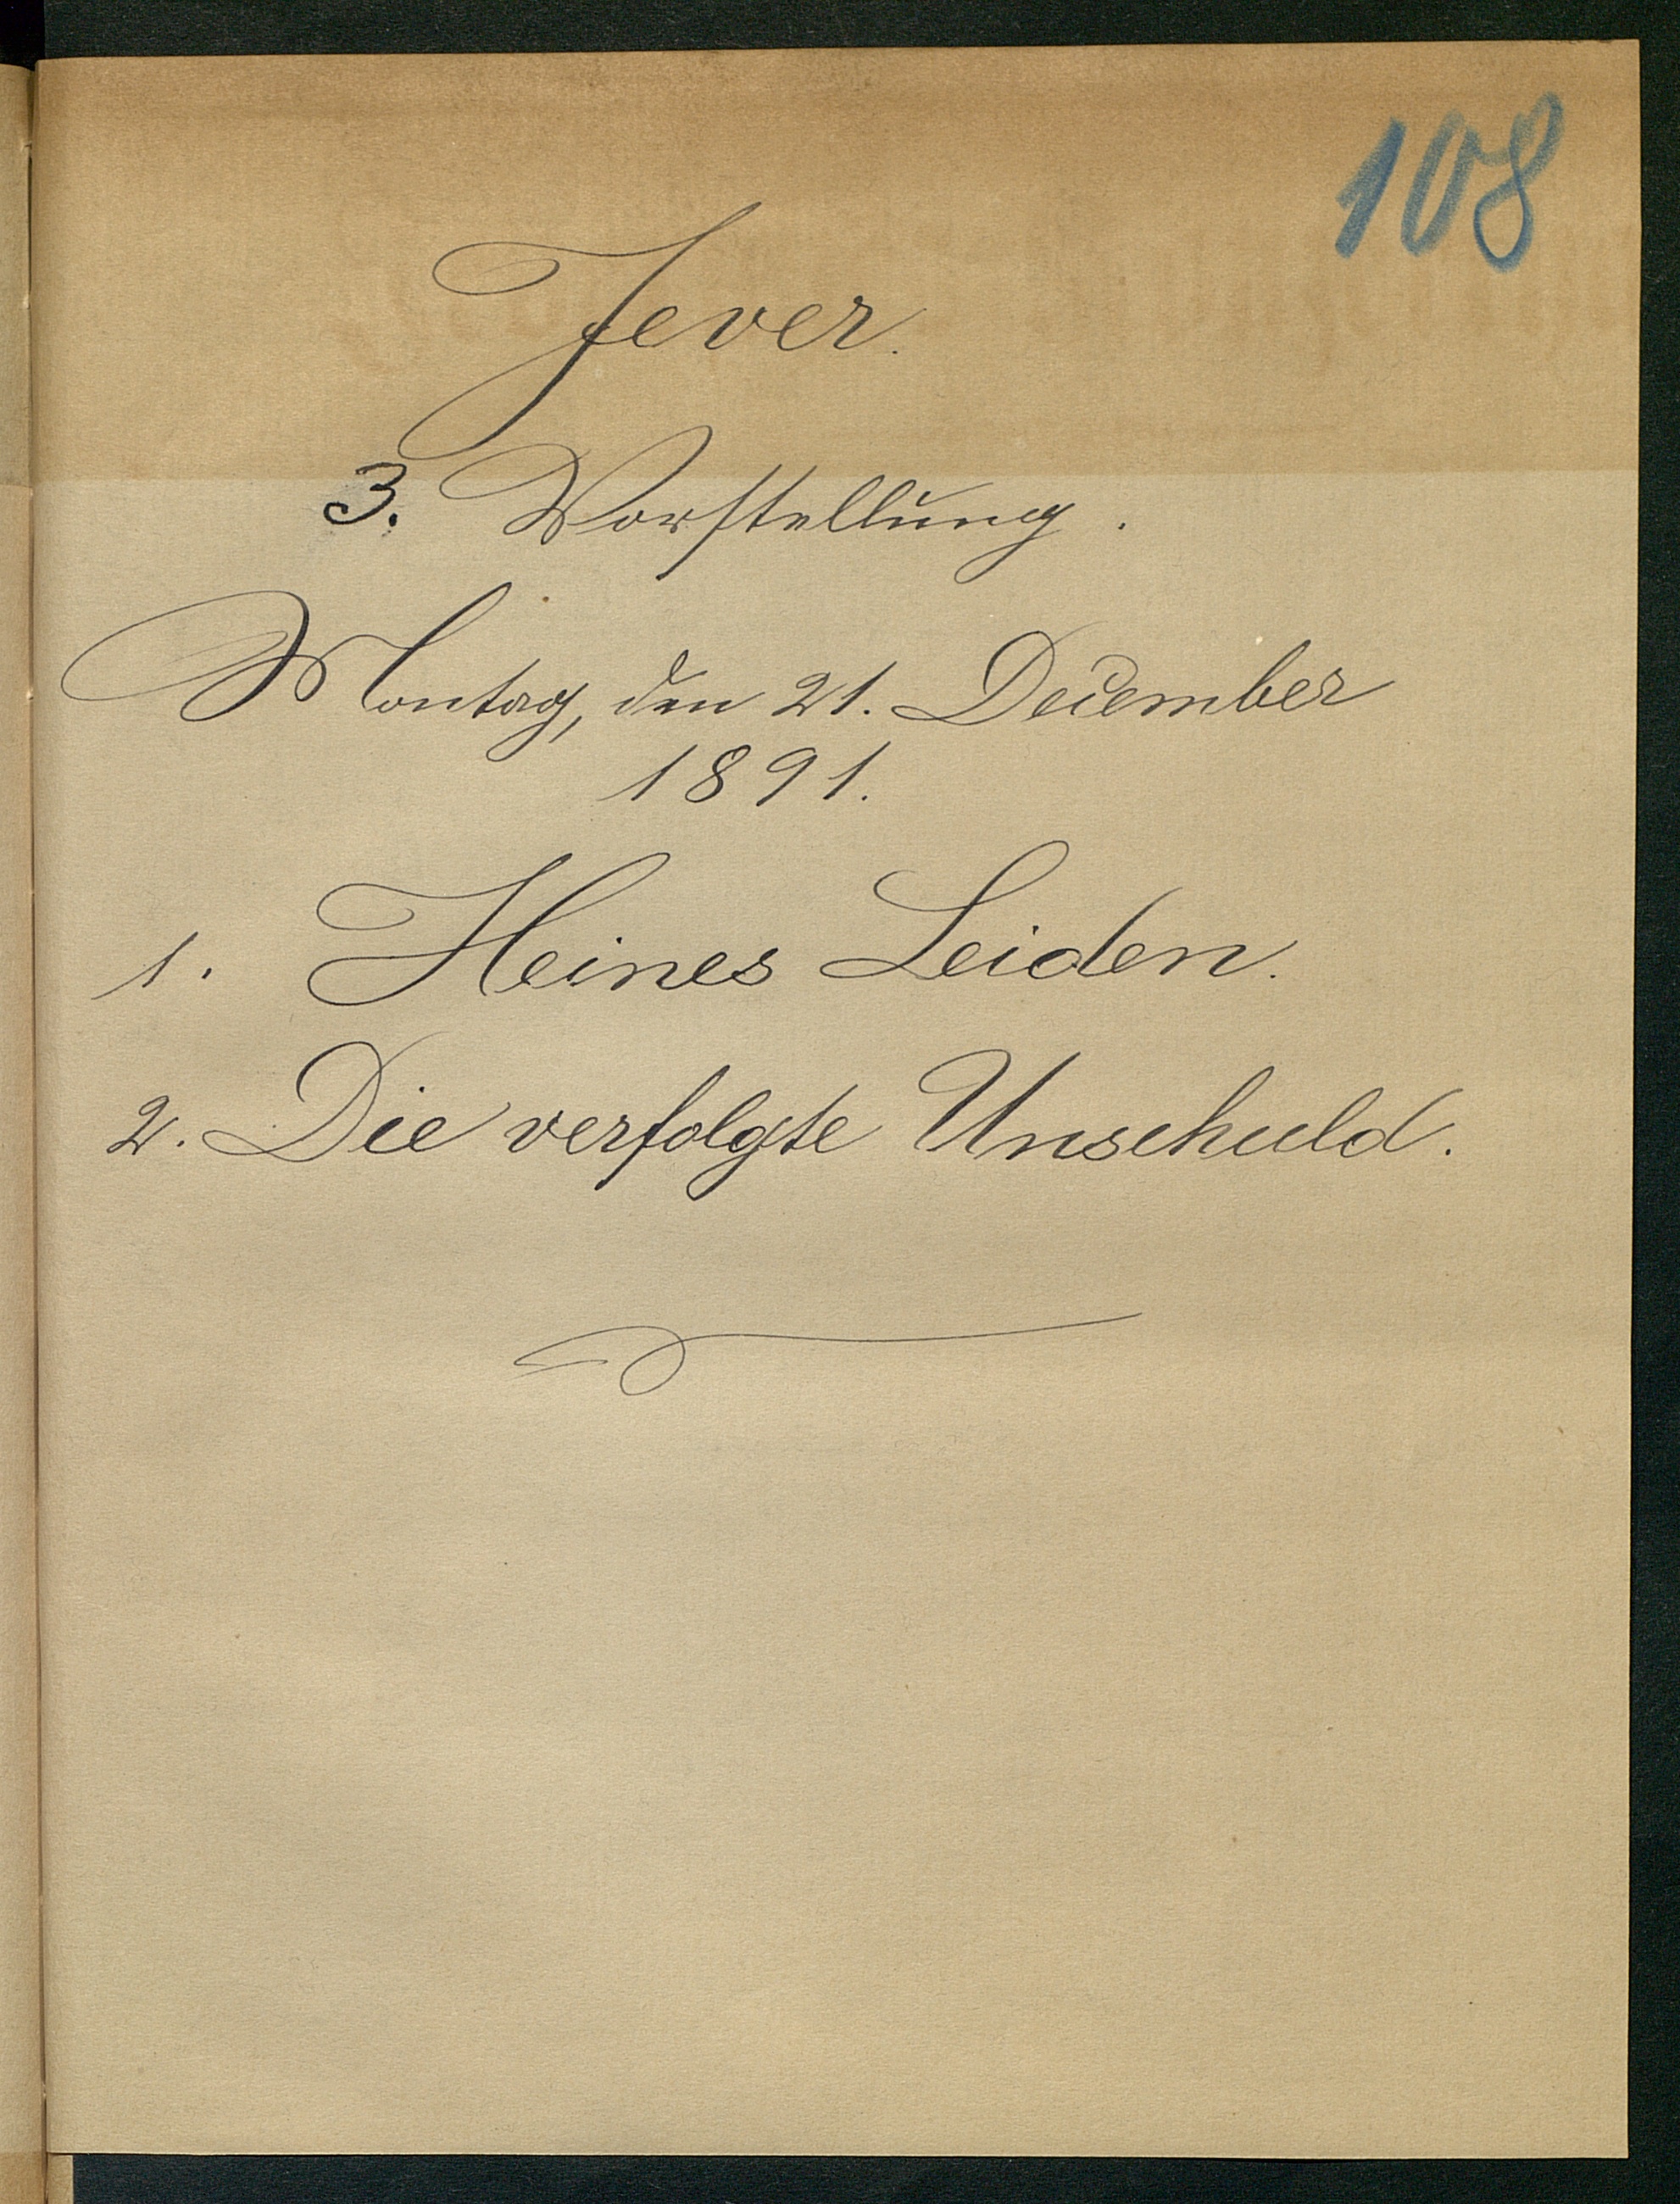 108
Jever.
3. Vorstellung.
Montag, den 21. December
1891.
1. Heines Leiden.
2. Die verfolgte Unschuld.